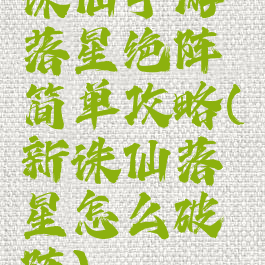 诛仙手游
落星绝阵
简单攻略(
新诛仙落
星怎么破
阵)